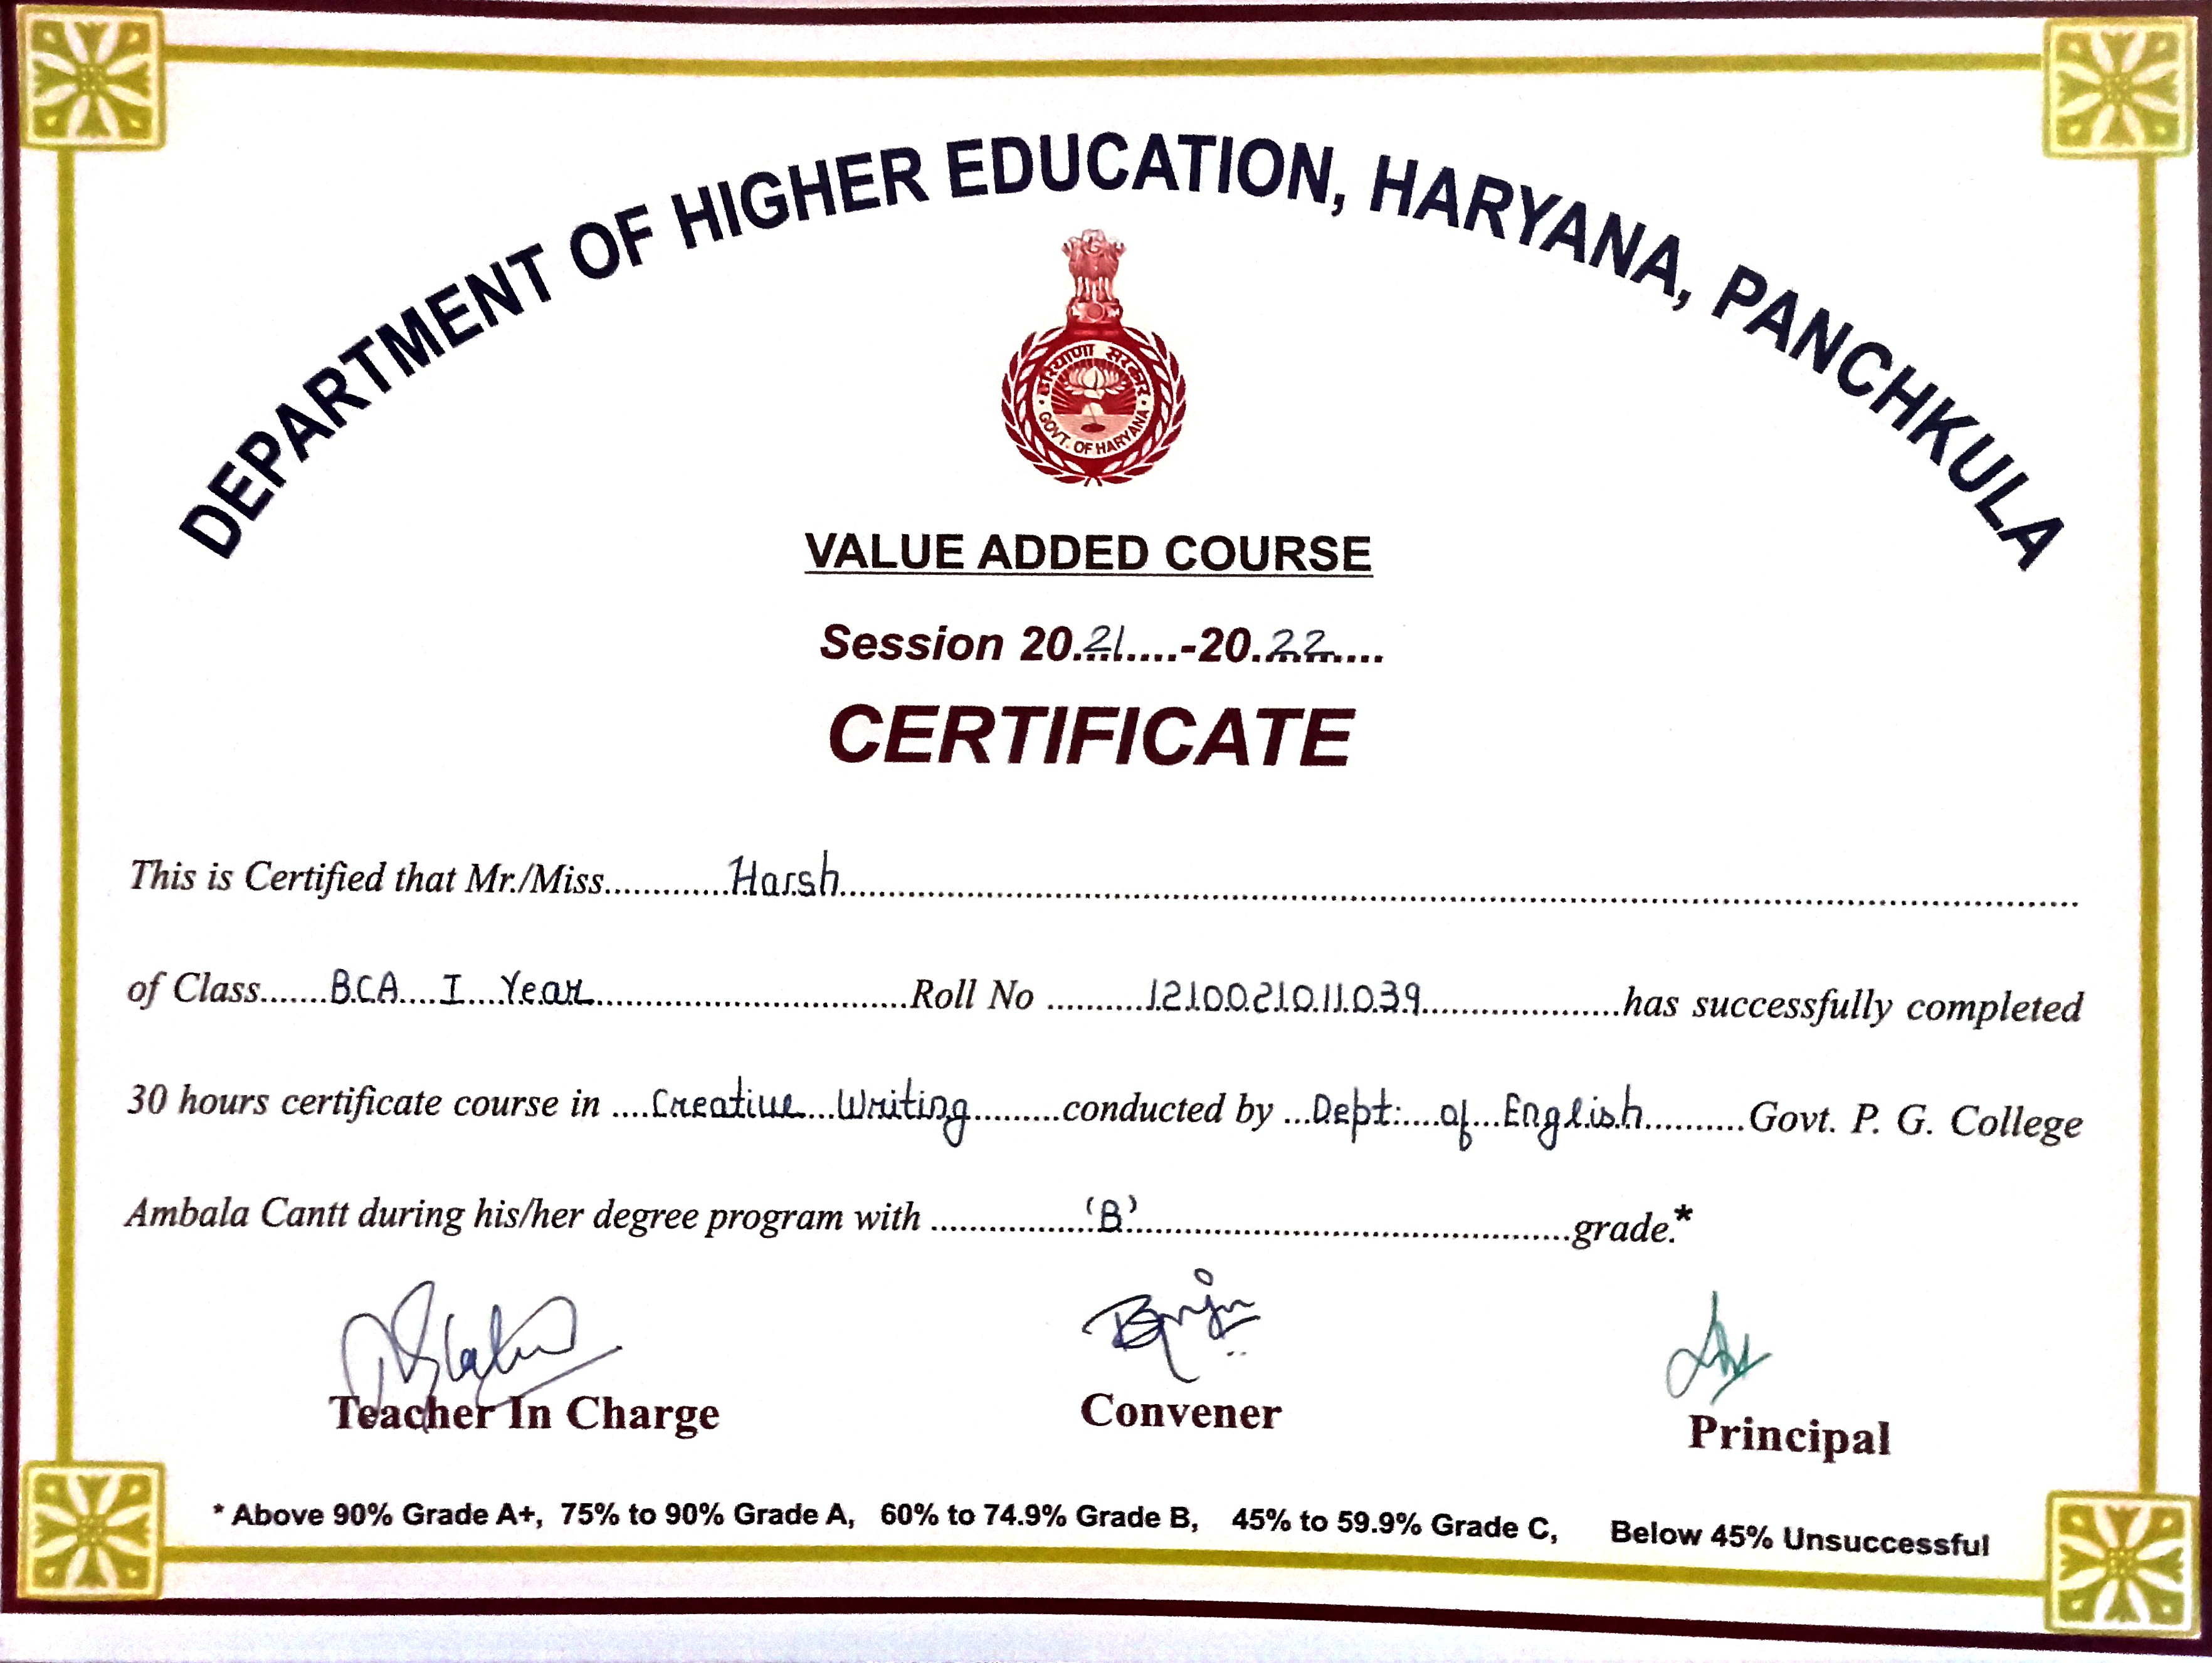 DEPARTMENT OF HIGHER EDUCATION, HARYANA, PANCHKULA
हरियाणा सरकार
GOVT. OF HARYANA
VALUE ADDED COURSE
Session 20.21.....-20.22.....
CERTIFICATE
This is Certified that Mr./Miss.............Harsh.............
of Class.......BCA....I....Year.............Roll No ..........1210021011039.............has successfully completed
30 hours certificate course in ....Creative...Writing.........conducted by ...Dept:....of...English..........Govt. P. G. College
Ambala Cantt during his/her degree program with .................'B'.............grade.*
Teacher In Charge Convener Principal
* Above 90% Grade A+, 75% to 90% Grade A, 60% to 74.9% Grade B, 45% to 59.9% Grade C, Below 45% Unsuccessful